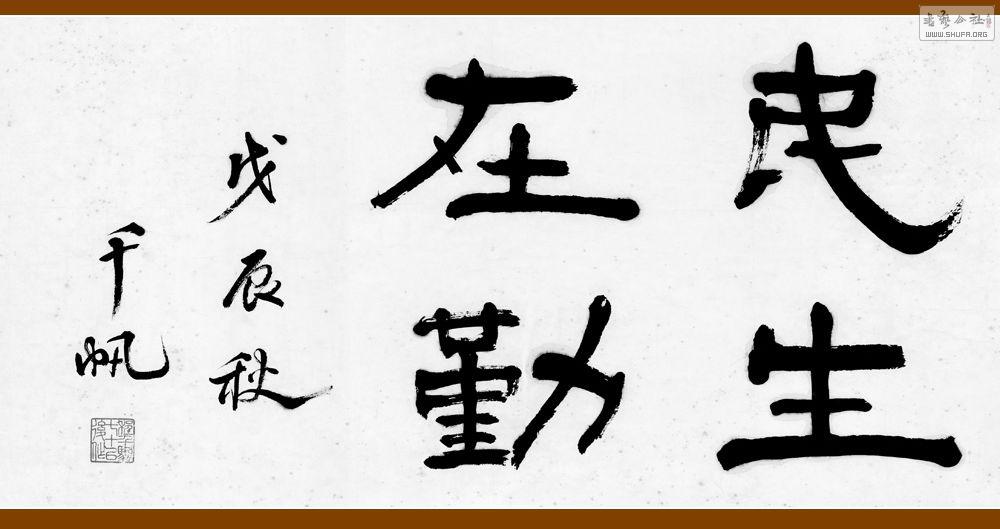 民生
在勤
戊辰秋
千帆
書藝公社
WWW.SHUFA.ORG